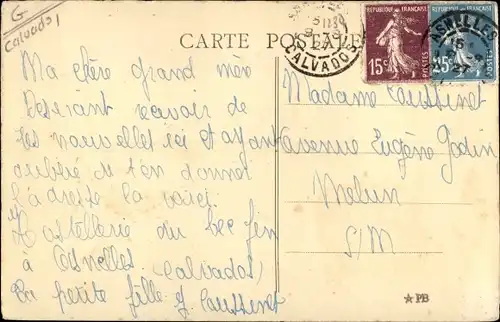 G
Calvados
CARTE POSTALE
CALVADOS
RÉPUBLIQUE FRANÇAISE
15c
POSTES
ASNELLES
25c
Ma chère grand mère
Desirant reavoir de
tes nouvelles ici et ayant
oublié de t'en donner
l'adresse la voici.
Hostellerie du bec fin
à Asnelles Calvados
ta petite fille J. Caussinet
Madame Caussinet
avenue Eugène Godin
Melun
S/M
★PB